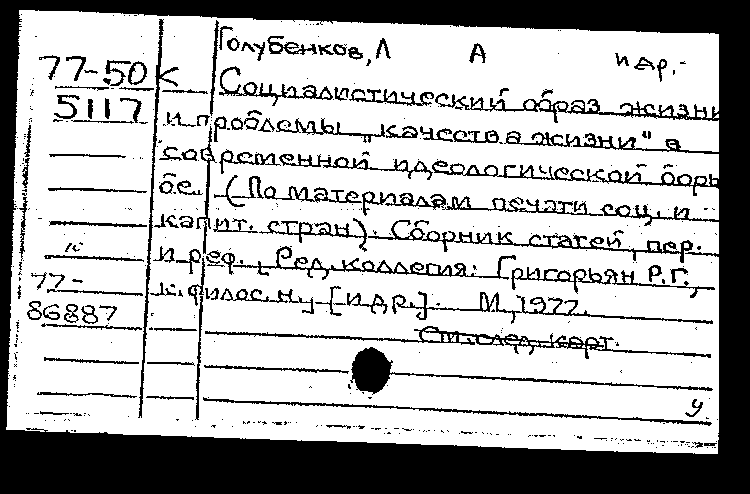 Голубенков, Л А и др.-
77-50 К Социалистический образ жизни
5117 и проблемы „качества жизни" в
современной идеологической борь
бе. (По материалам печати соц. и
капит. стран). Сборник статей, пер.
и реф. [Ред. коллегия: Григорьян Р.Г.,
77-
к. филос. н., [и др.]. М., 1977.
86887
См. след. карт.
У